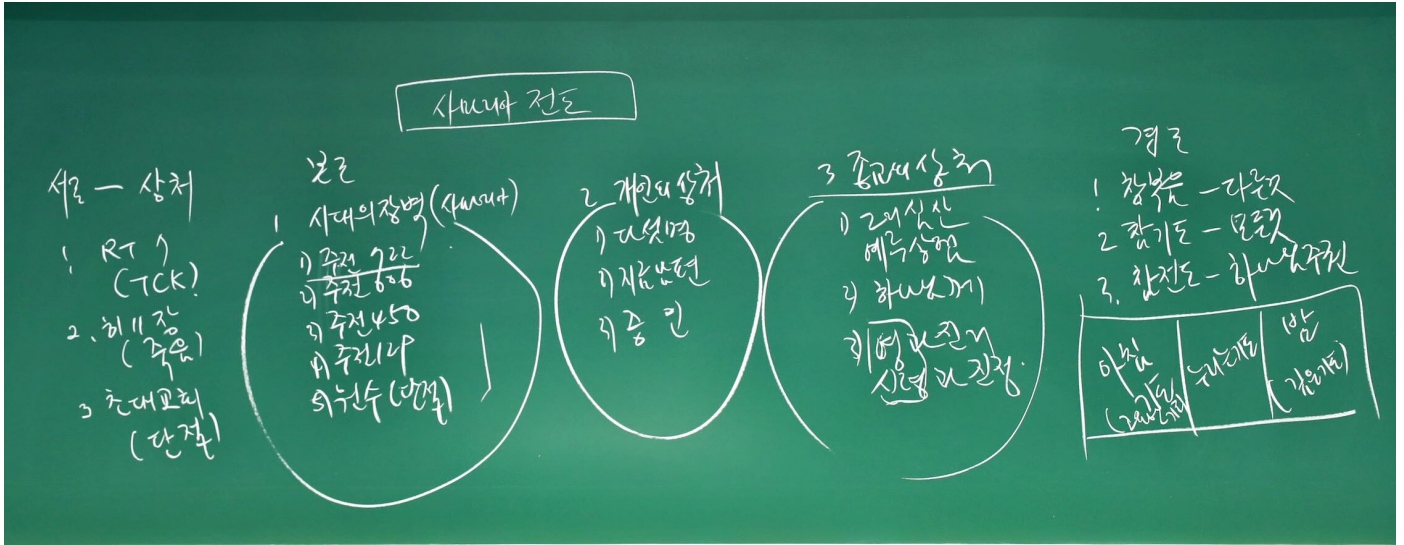 사마리아 전도
서론 - 상처
1. RT ↑
(TCK)
2. 히11장
(죽음)
3 초대교회
(단절)
본론
1 시대의 장벽 (사마리아)
1) 주전 722
2) 주전 606
3) 주전 450
4) 주전 129
5) 원수 (단절)
2 개인의 상처
1) 다섯명
2) 지금 남편
3) 증인
3 종교의 상처
1) 그리심산
예루살렘
2) 하나님께
3) 영과 진리
신령과 진정.
결론
1. 참복음 - 다른것
2 참기도 - 모든것
3. 참전도 - 하나님 주권
아침
기도
누리는기도
밤
(깊은기도)